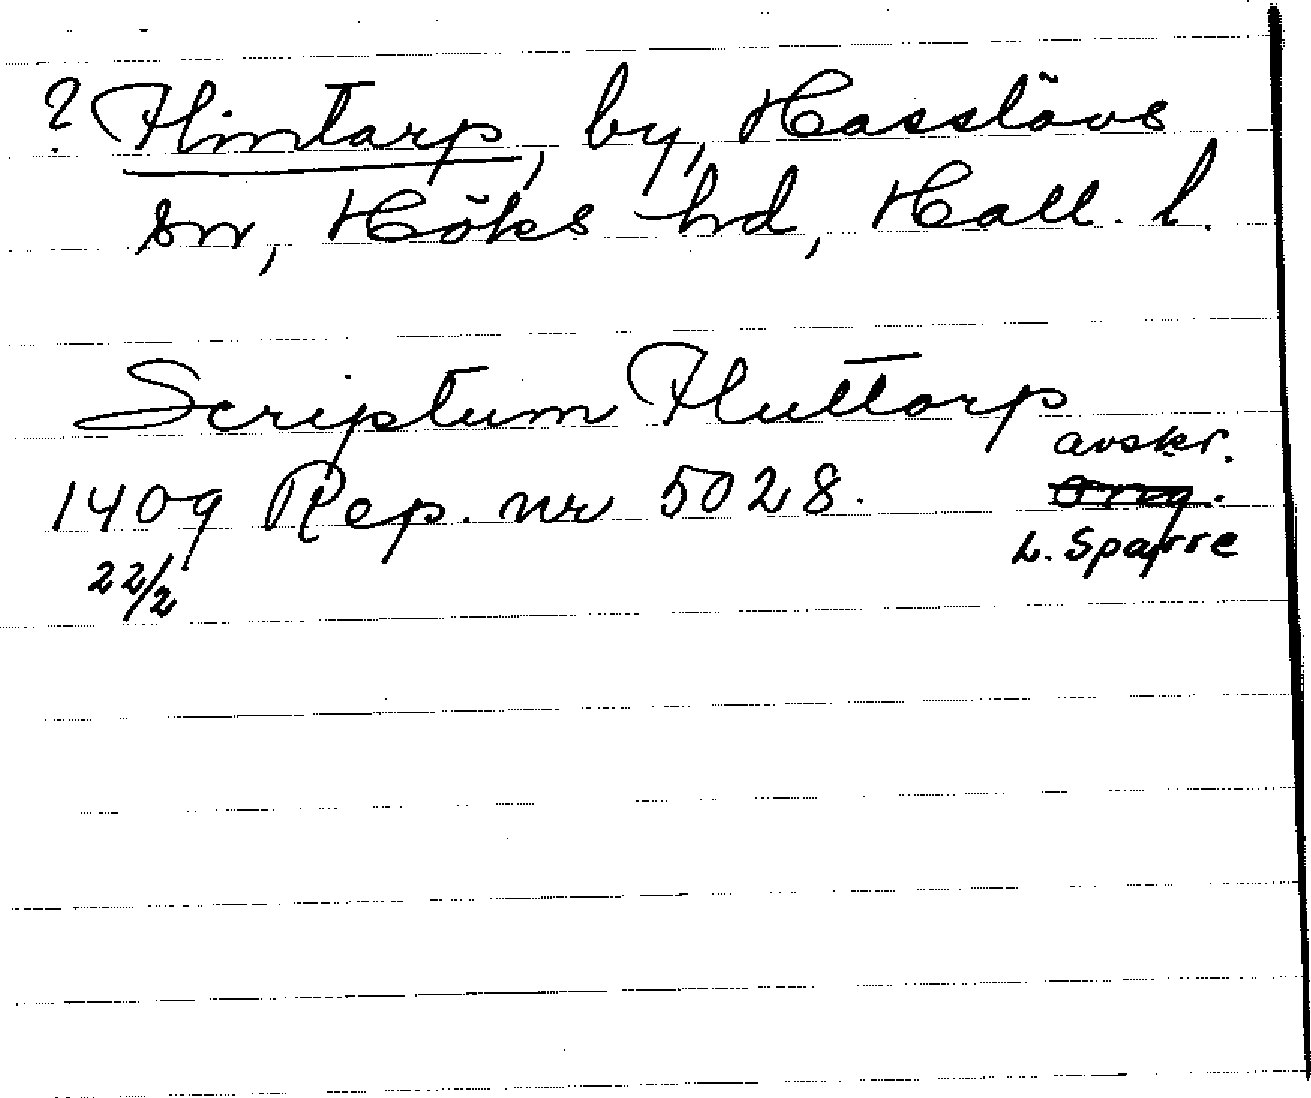 ? Flintarp, by, Hasslövs
sn, Höks hd, Hall. l.
Scriptum Fluttorp
avskr.
1409 Rep. nr 5028. Orig.
22/2 L. Sparre